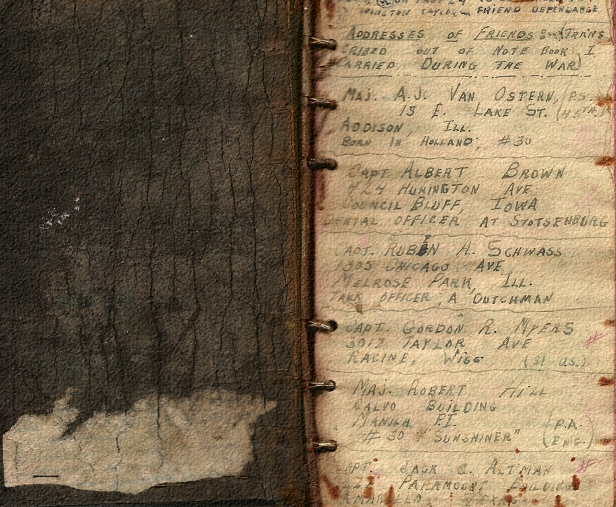 TAYLOR FRIEND DEPENDABLE
ADDRESSES OF FRIENDS (TRANS
CRIBED OUT OF NOTE BOOK I
CARRIED DURING THE WAR)
MAJ. A.J. VAN OSTERN, (P.S.
15 E. LAKE ST. (45TH)
ADDISON, ILL.
BORN IN HOLLAND, #30
CAPT ALBERT BROWN
724 HURINGTON AVE
COUNCIL BLUFF, IOWA
DENTAL OFFICER AT STOTSENBURG
CAPT. RUBEN A. SCHWASS
1305 CHICAGO AVE
MELROSE PARK ILL.
TANK OFFICER, A DUTCHMAN
CAPT. GORDON R. MYERS
3017 TAYLOR AVE
RACINE, WISC (31 U.S.)
MAJ. ROBERT HILL
CALVO BUILDING
MANILA P.I. (P.A.
#30 "SUNSHINER" (ENG.)
CAPT. JACK C. ALTMAN
PARAMOUNT BUILDING
AMARILLO, TEXAS